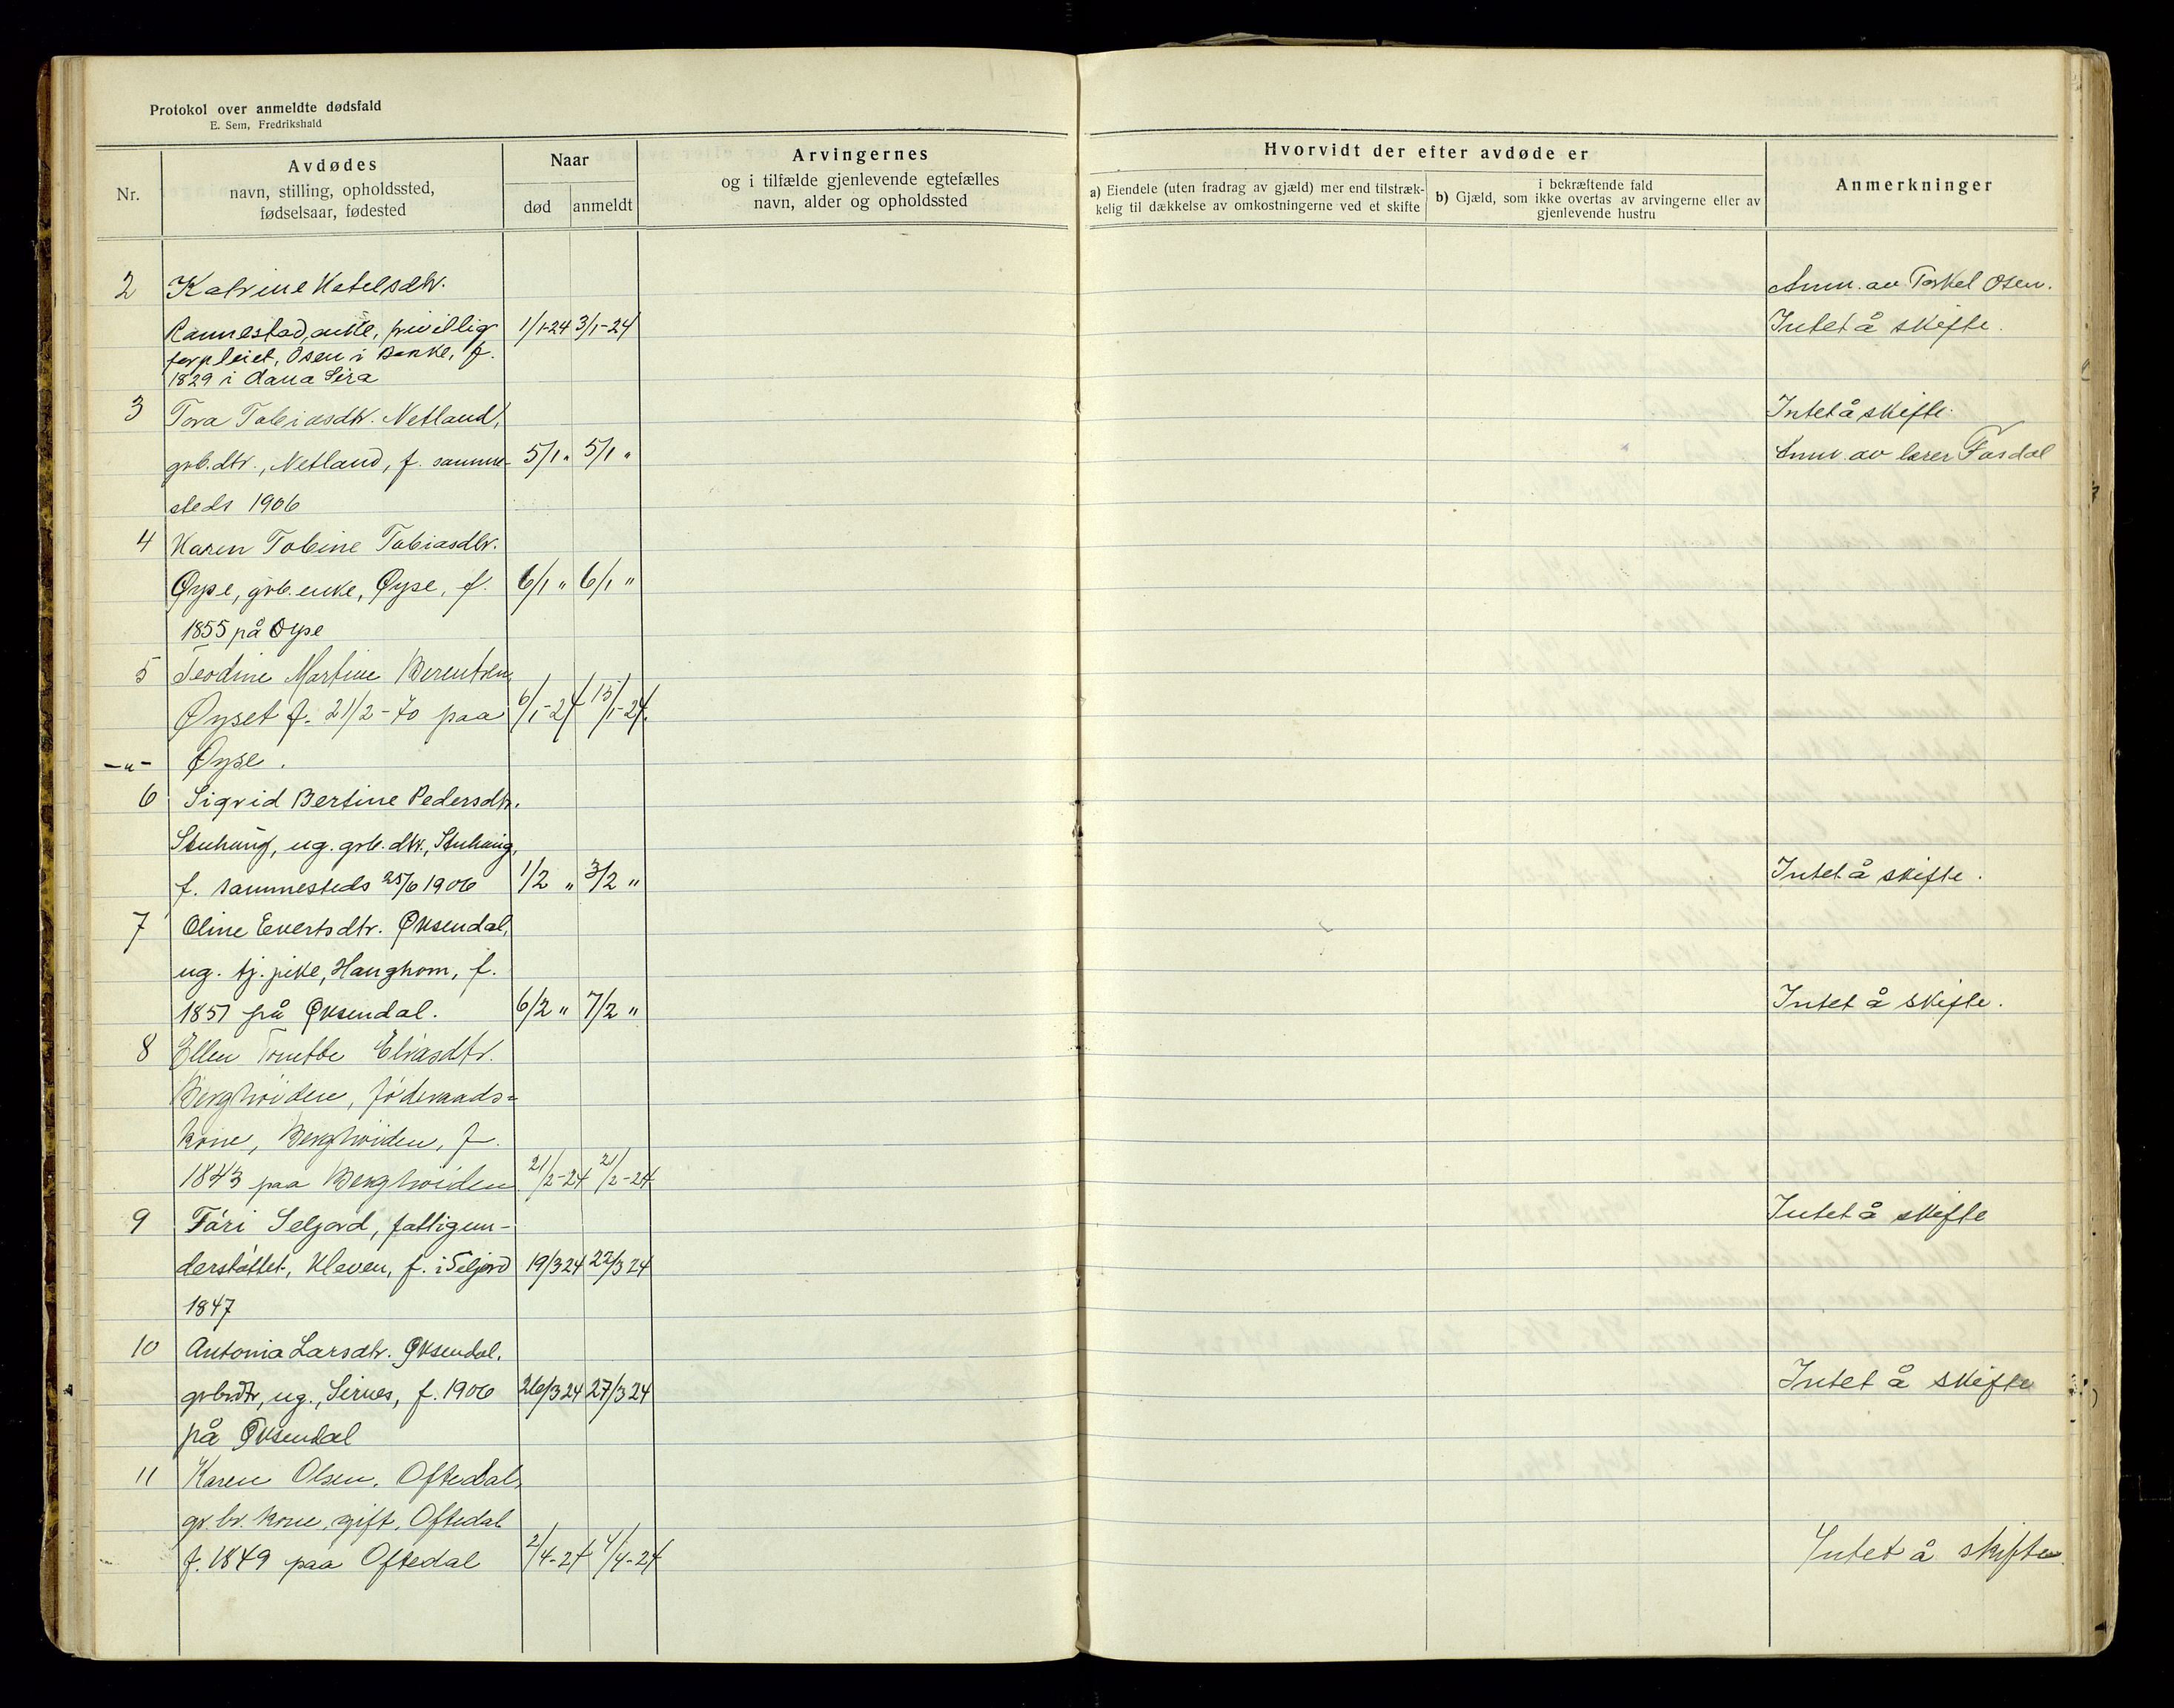 Protokol over anmeldte dødsfald
E. Sem, Fredrikshald
Nr.
Avdødes
navn, stilling, opholdssted,
fødselsaar, fødested
Naar
død anmeldt
Arvingernes
og i tilfælde gjenlevende egtefælles
navn, alder og opholdssted
Hvorvidt der efter avdøde er
a) Eiendele (uten fradrag av gjæld) mer end tilstræk-
kelig til dækkelse av omkostningerne ved et skifte
i bekræftende fald
b) Gjæld, som ikke overtas av arvingerne eller av
gjenlevende hustru
Anmerkninger
2 Katrine Ketelsdtr. Anm. av Torkel Osen.
Rannestad, enke, privillig 1/1-24 3/1-24 Intet å skifte.
forpleiet, Osen i Bakke, f.
1829 i Aana Sira
3 Tora Tobiasdtr. Netland, Intet å skifte.
grb.dtr., Netland, f. samme- 5/1 " 5/1 " Anm. av lærer Fasdal
steds 1906
4 Karen Tobine Tobiasdtr.
Øyse, grb. enke, Øyse, f. 6/1 " 6/1 "
1855 på Øyse
5 Teodine Martine Berentsen,
Øyset f. 21/2-70 paa 6/1-24 15/1-24.
-"- Øyse.
6 Sigrid Bertine Pedersdtr.
Stuhaug, ug. grb. dtr., Stuhaug,
f. sammesteds 25/6 1906 1/2 " 3/2 " Intet å skifte.
7 Oline Evertsdtr. Øksendal,
ug. tj. pike, Haughom, f.
1857 på Øksendal. 6/2 " 7/2 " Intet å skifte.
8 Ellen Tonette Eliasdtr.
Berghöiden, föderaads=
kone, Berghöiden, f.
1843 paa Berghöiden 21/2-24 21/2-24
9 Tári Seljord, fattigun- Intet å skifte
derstöttet, Kleven, f. i Seljord 19/3 24 22/3 24
1847
10 Antonia Larsdtr. Øksendal,
grbrdtr, ug., Sirnes, f. 1906 26/3 24 27/3 24 Intet å skifte
på Øksendal
11 Karen Olsen, Oftedal,
gr. br. kone, gift, Oftedal
f. 1849 paa Oftedal 2/4-24 4/4-24 Intet å skifte.